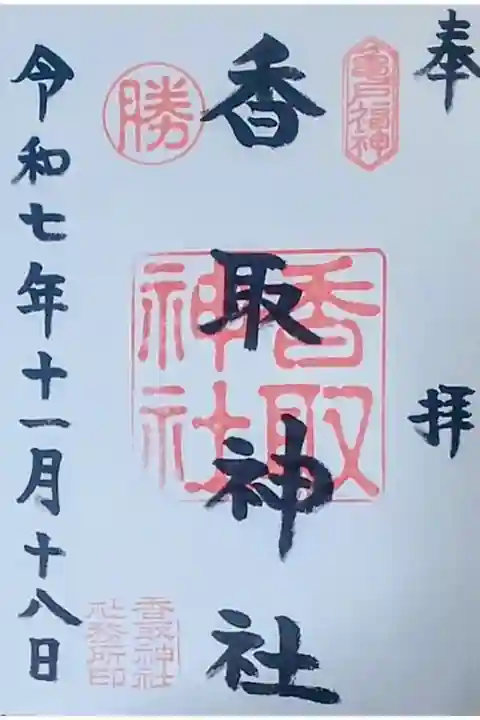 奉拝
亀戸福神
香取神社
香取神社
勝
香取神社
社務所印
令和七年十一月十八日